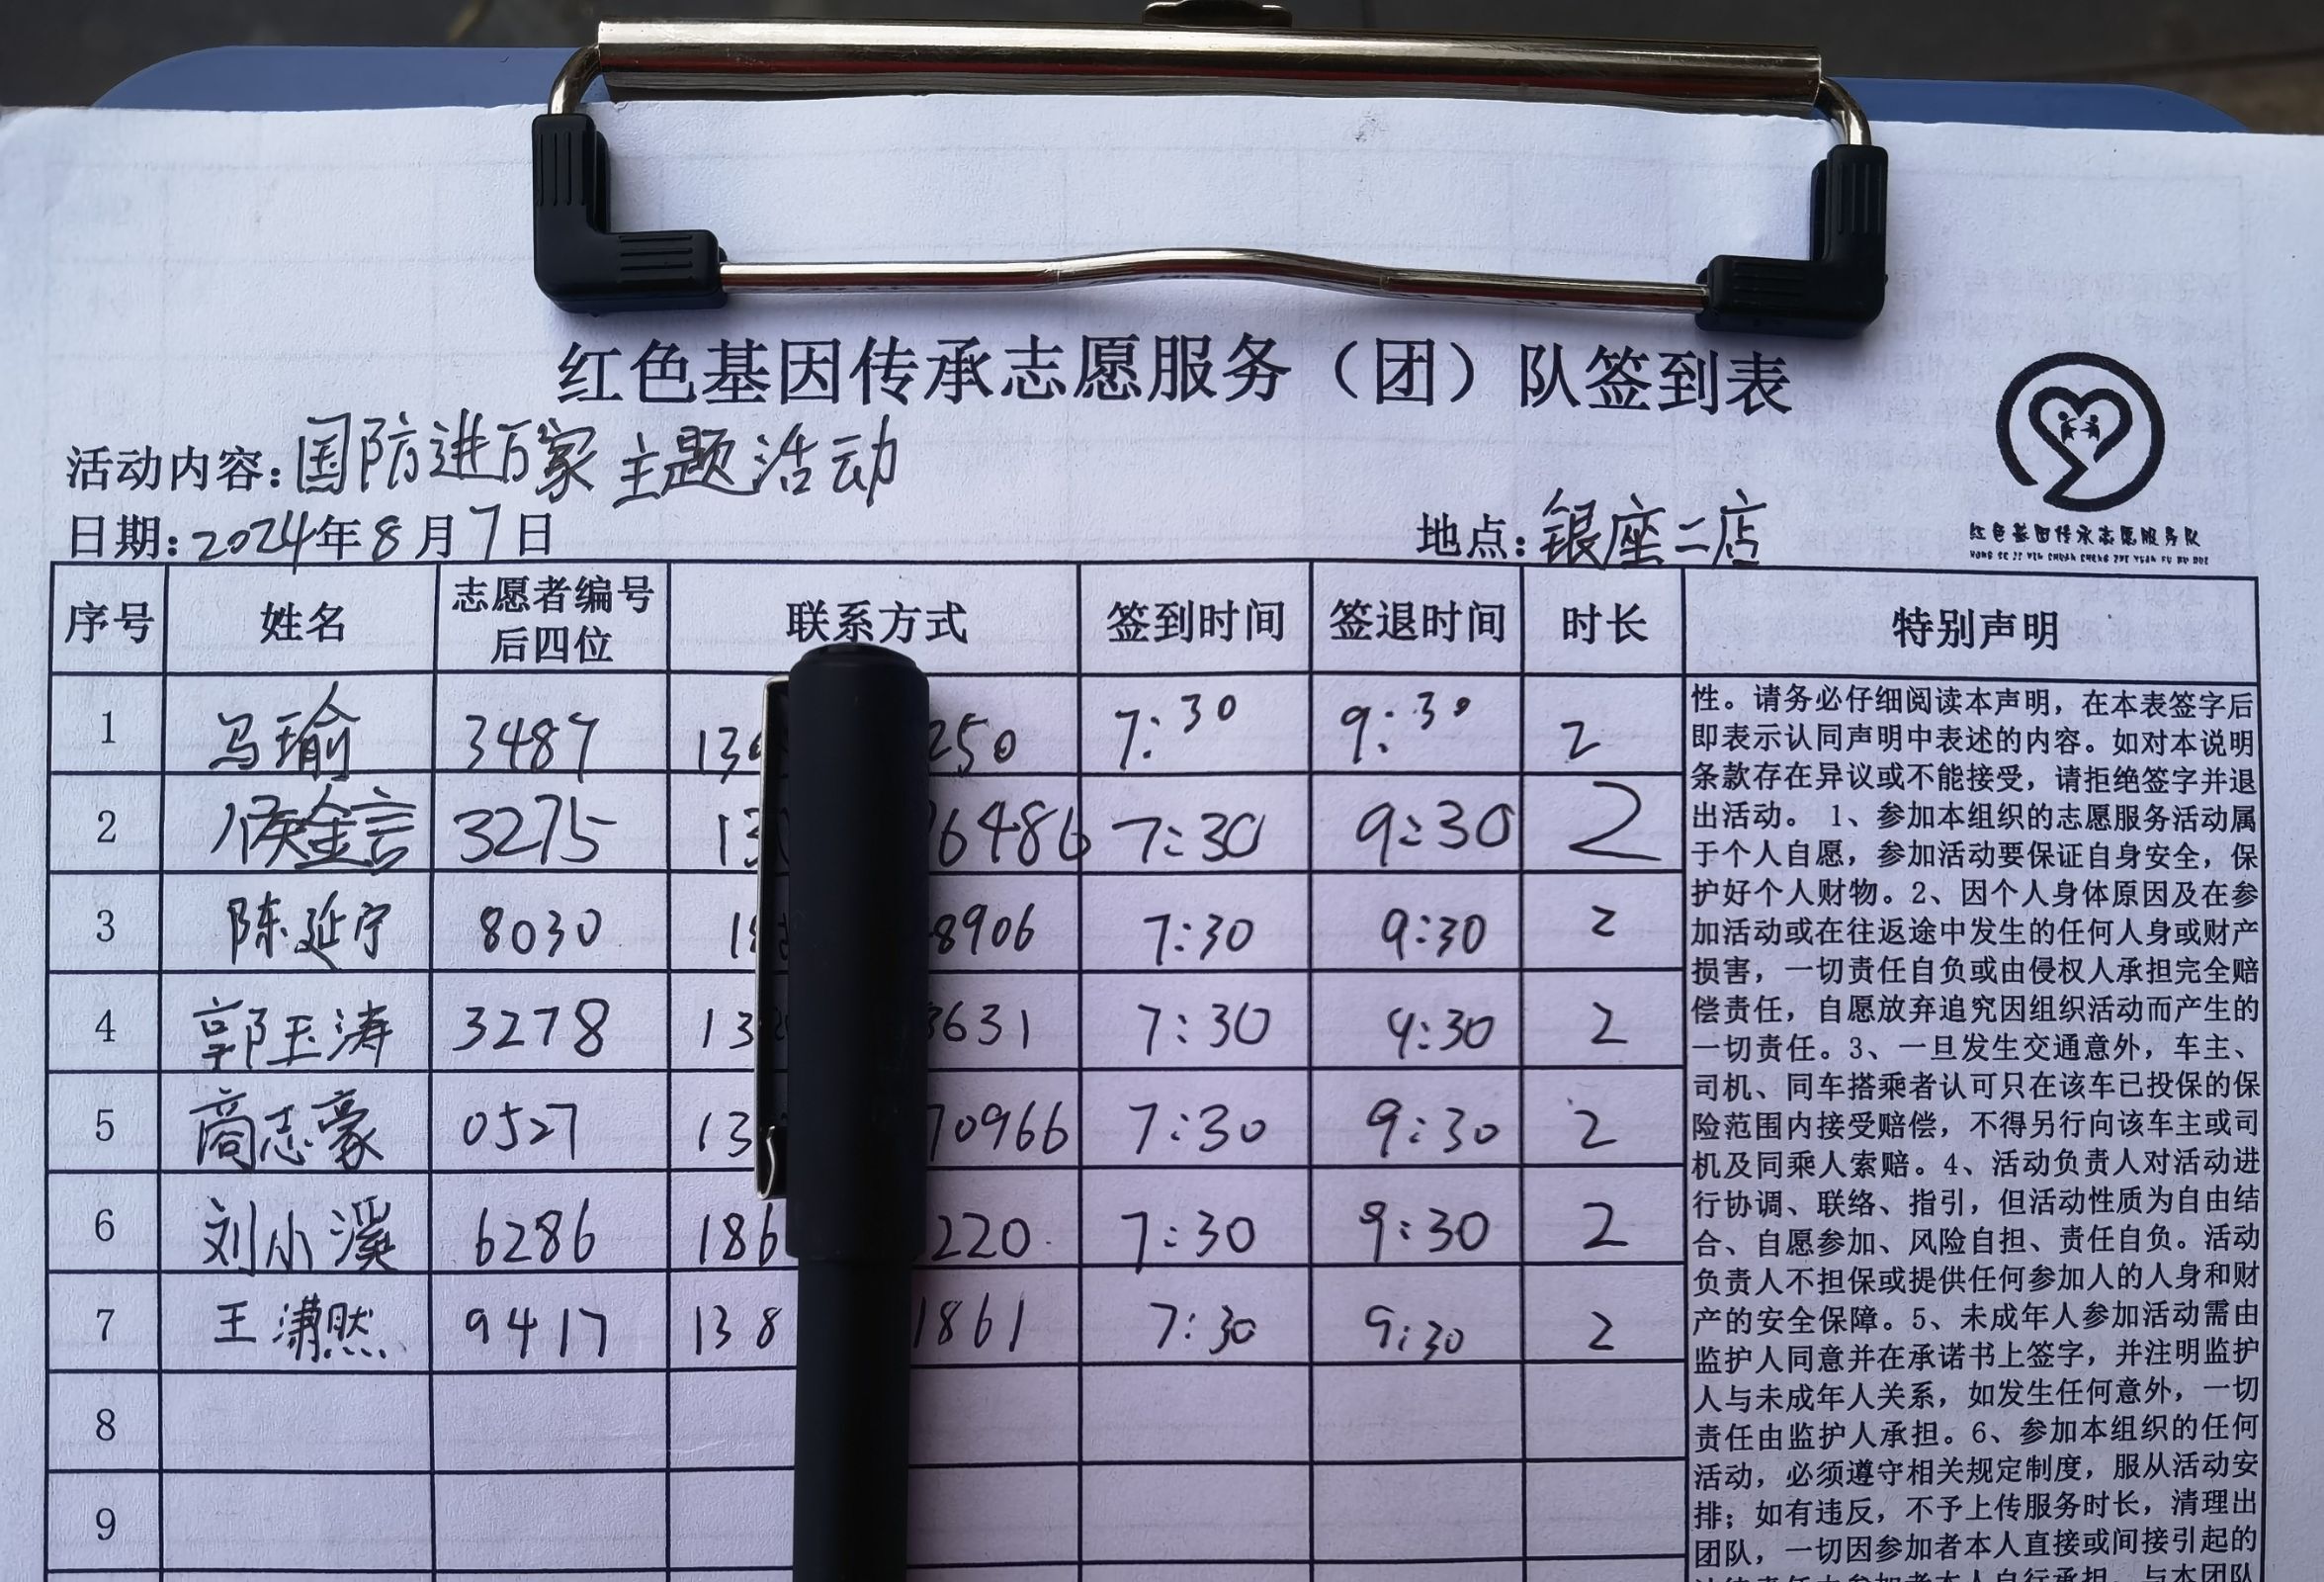 红色基因传承志愿服务（团）队签到表
活动内容：国防进万家主题活动
日期：2024年8月7日 地点：银座二店
红色基因传承志愿服务队
HONG SE JI YIN CHUAN CHENG ZHI YUAN FU WU DUI
序号 姓名 志愿者编号后四位 联系方式 签到时间 签退时间 时长 特别声明
1 马瑜 3487 13 250 7:30 9:30 2
2 侯金言 3275 13 6486 7:30 9:30 2
3 陈延宁 8030 18 8906 7:30 9:30 2
4 郭玉涛 3278 13 3631 7:30 9:30 2
5 商志豪 0527 13 70966 7:30 9:30 2
6 刘小溪 6286 186 220 7:30 9:30 2
7 王潇然 9417 138 1861 7:30 9:30 2
8
9
性。请务必仔细阅读本声明，在本表签字后
即表示认同声明中表述的内容。如对本说明
条款存在异议或不能接受，请拒绝签字并退
出活动。 1、参加本组织的志愿服务活动属
于个人自愿，参加活动要保证自身安全，保
护好个人财物。2、因个人身体原因及在参
加活动或在往返途中发生的任何人身或财产
损害，一切责任自负或由侵权人承担完全赔
偿责任，自愿放弃追究因组织活动而产生的
一切责任。3、一旦发生交通意外，车主、
司机、同车搭乘者认可只在该车已投保的保
险范围内接受赔偿，不得另行向该车主或司
机及同乘人索赔。4、活动负责人对活动进
行协调、联络、指引，但活动性质为自由结
合、自愿参加、风险自担、责任自负。活动
负责人不担保或提供任何参加人的人身和财
产的安全保障。5、未成年人参加活动需由
监护人同意并在承诺书上签字，并注明监护
人与未成年人关系，如发生任何意外，一切
责任由监护人承担。6、参加本组织的任何
活动，必须遵守相关规定制度，服从活动安
排；如有违反，不予上传服务时长，清理出
团队，一切因参加者本人直接或间接引起的